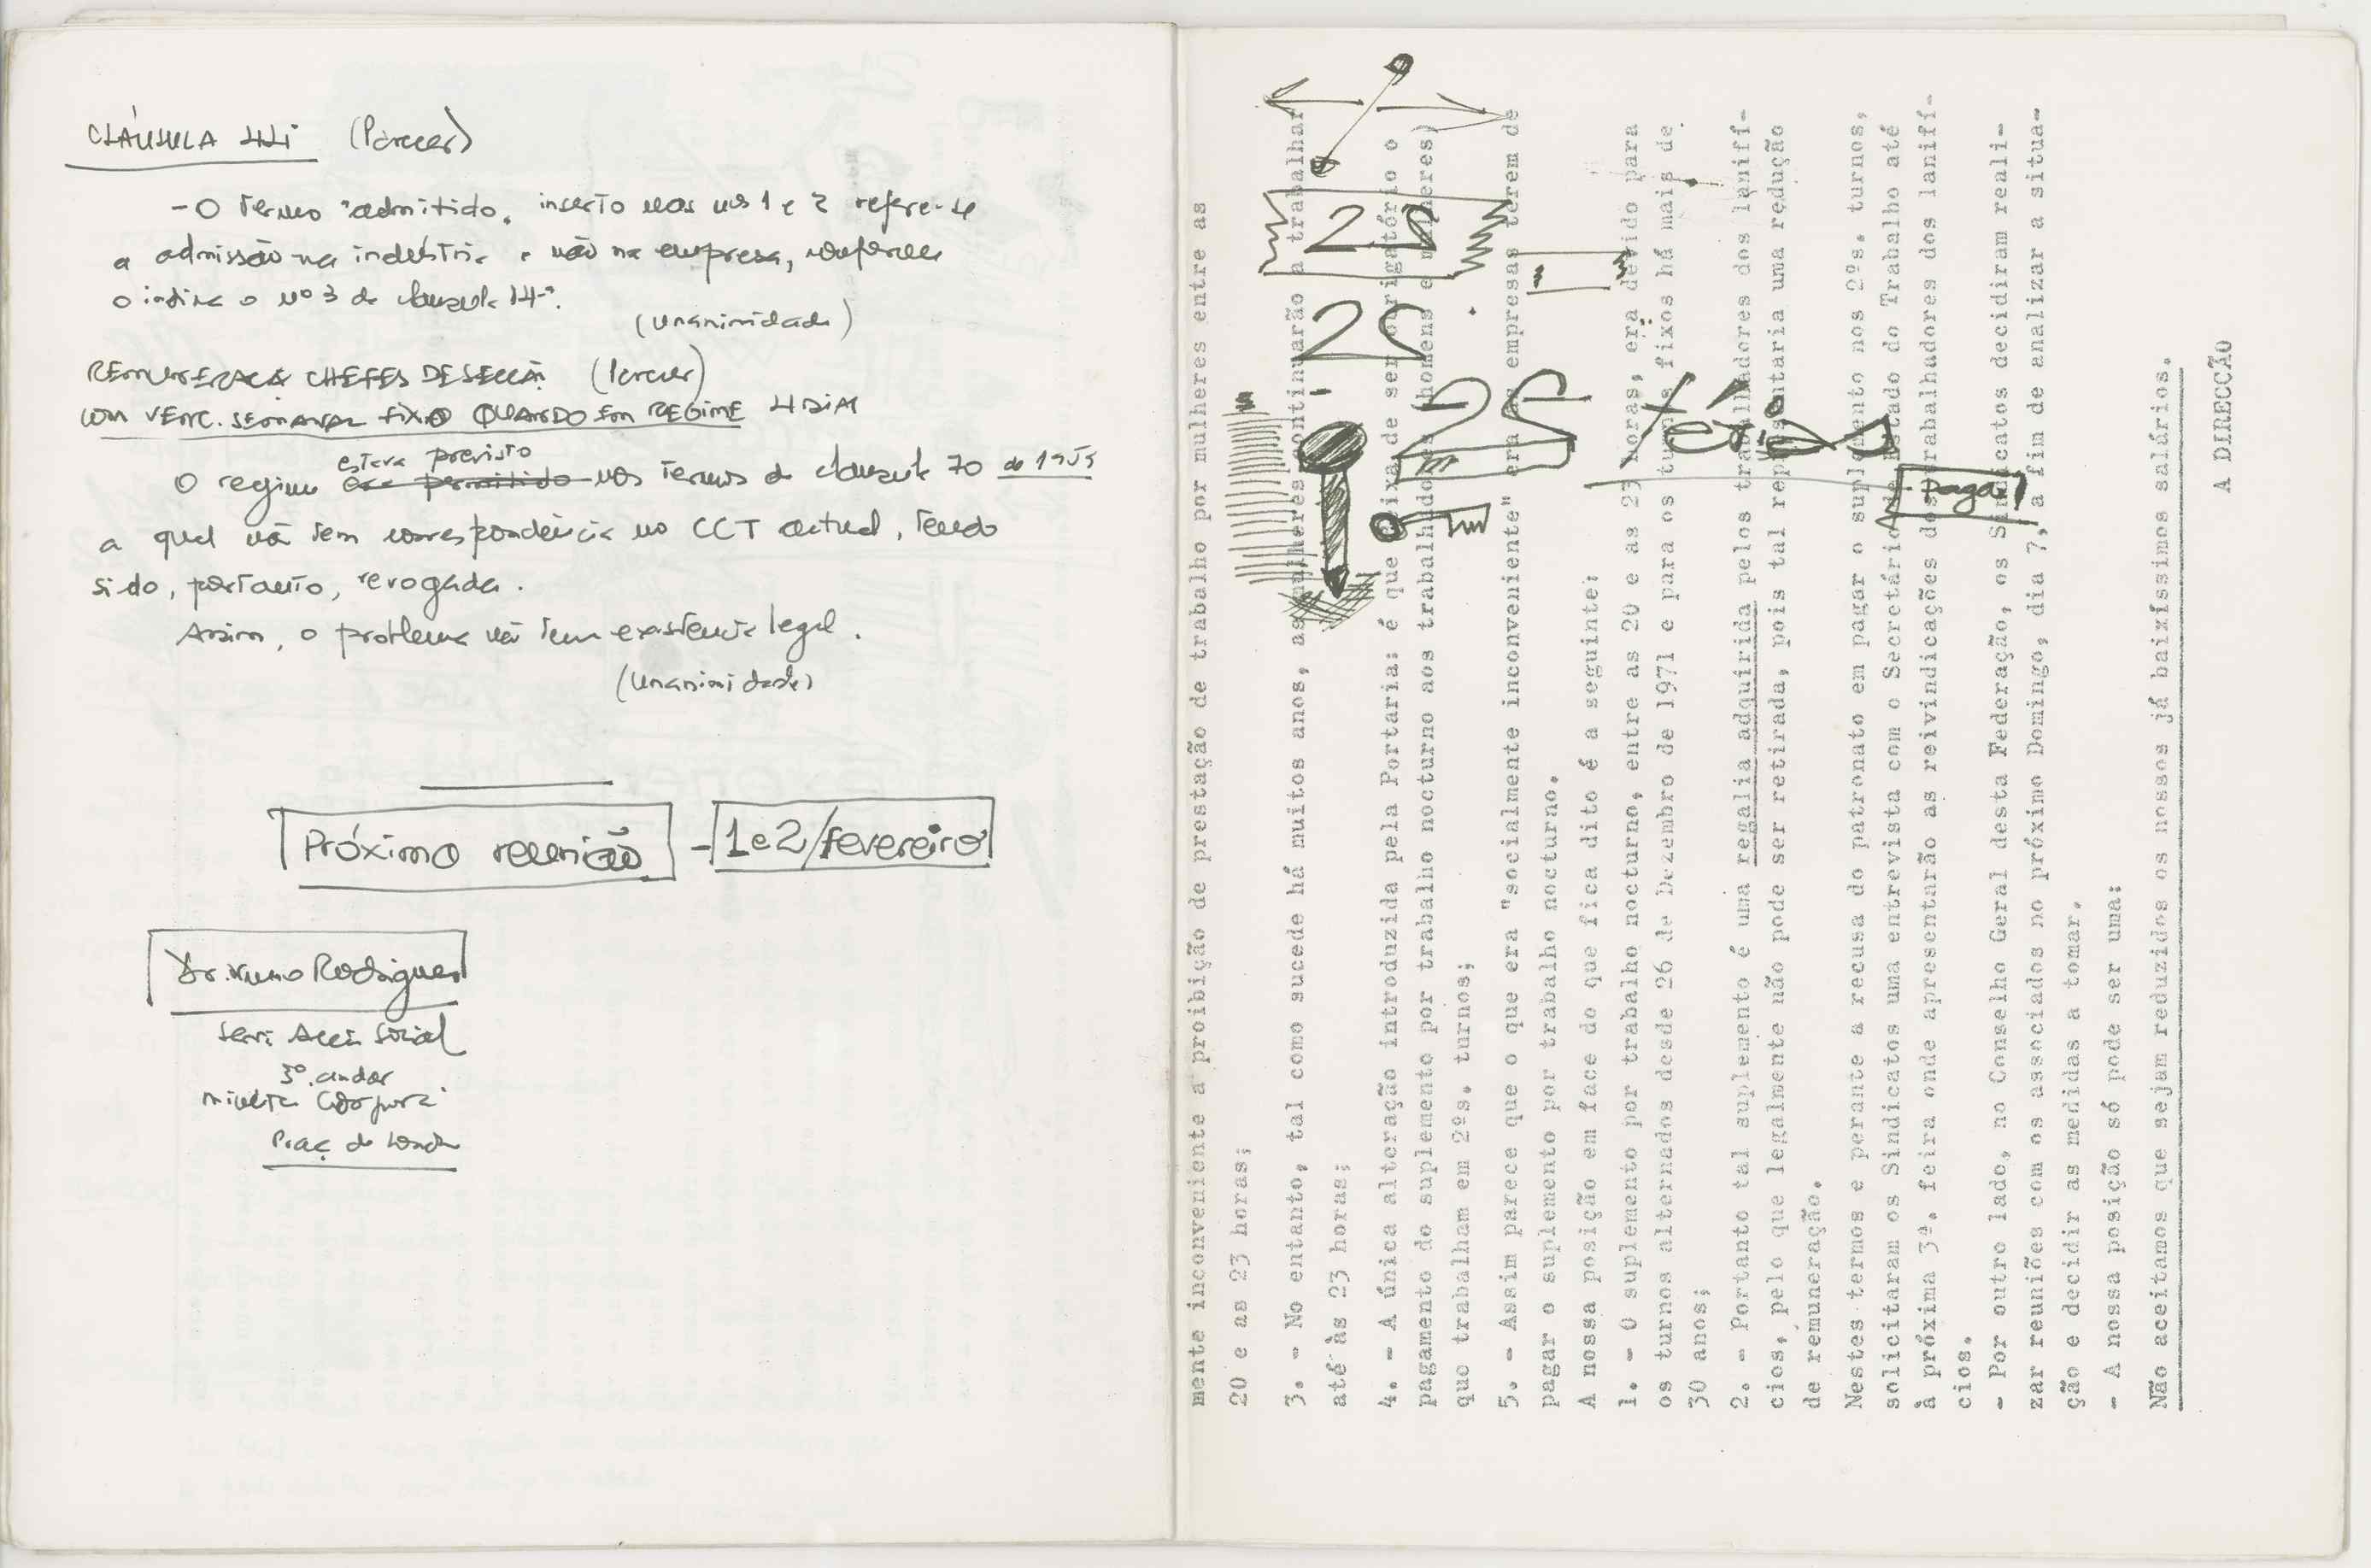 CLÁUSULA 44ª (Parecer)
- O termo "admitido" inserto nos nos 1 e 2 refere-se
a admissão na indústria e não na empresa, conforme
o indica o nº 3 da cláusula 14ª.
(Unanimidade)
REMUNERAÇÃO CHEFES DE SECÇÃO (Parecer)
COM VENC. SEMANAL FIXO QUANDO EM REGIME 4 DIAS
estava previsto
O regime era permitido nos termos da cláusula 70 de 1955
a qual não tem correspondência no CCT actual, tendo
sido, portanto, revogada.
Assim, o problema não tem existência legal.
(Unanimidade)
Próximo reunião - 1 e 2/fevereiro
Dr. Nuno Rodrigues
Acção Social
3º andar
Praç de
mente inconveniente a proibição de prestação de trabalho por mulheres entre as
20 e as 23 horas;
3. - No entanto, tal como sucede há muitos anos, as mulheres continuarão a trabalhar
até às 23 horas;
4. - A única alteração introduzida pela Portaria: é que deixa de ser obrigatório o
pagamento do suplemento por trabalho nocturno aos trabalhadores (homens e mulheres)
que trabalham em 2ºs. turnos;
5. - Assim parece que o que era "socialmente inconveniente" era as empresas terem de
pagar o suplemento por trabalho nocturno.
A nossa posição em face do que fica dito é a seguinte:
1. - O suplemento por trabalho nocturno, entre as 20 e as 23 horas, era devido para
os turnos alternados desde 26 de Dezembro de 1971 e para os turnos fixos há mais de
30 anos;
2. - Portanto tal suplemento é uma regalia adquirida pelos trabalhadores dos lanifí-
cios, pelo que legalmente não pode ser retirada, pois tal representaria uma redução
de remuneração.
Nestes termos e perante a recusa do patronato em pagar o suplemento nos 2ºs. turnos,
solicitaram os Sindicatos uma entrevista com o Secretário de Estado do Trabalho até
à próxima 3ª. feira onde apresentarão as reivindicações dos trabalhadores dos lanifí-
cios.
- Por outro lado, no Conselho Geral desta Federação, os Sindicatos decidiram reali-
zar reuniões com os associados no próximo Domingo, dia 7, a fim de analizar a situa-
ção e decidir as medidas a tomar.
- A nossa posição só pode ser uma:
Não aceitamos que sejam reduzidos os nossos já baixíssimos salários.
A DIRECÇÃO
25 férias